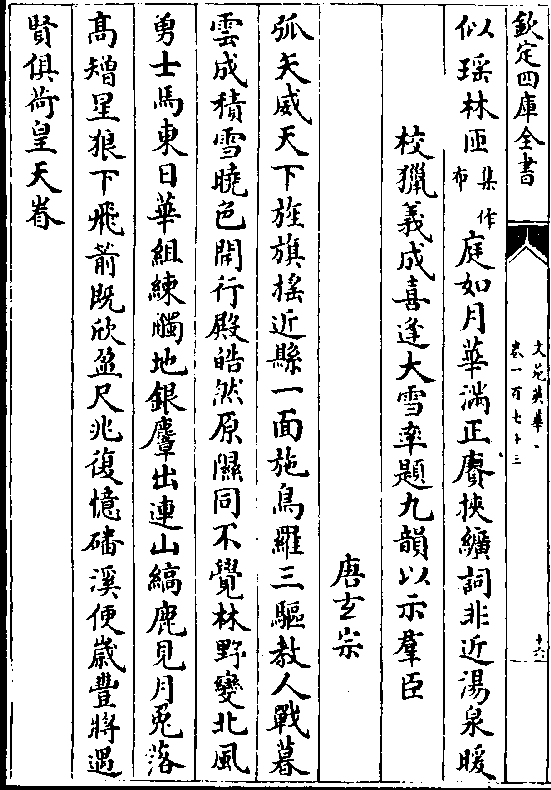 欽定四庫全書
文苑英華
卷一百七十三
十六
似瑶林匝集作布庭如月華滿正賡挾纊詞非近湯泉暖
校獵義成喜逢大雪率題九韻以示羣臣
唐玄宗
弧矢威天下旌旗揺近縣一面施鳥羅三驅敎人戰暮
雲成積雪曉色開行殿皓然原隰同不覺林野變北風
勇士馬東日華組練觸地銀麞出連山縞鹿見月兎落
髙矰星狼下飛箭既欣盈尺兆復憶磻溪便歲豐將遇
賢俱荷皇天眷